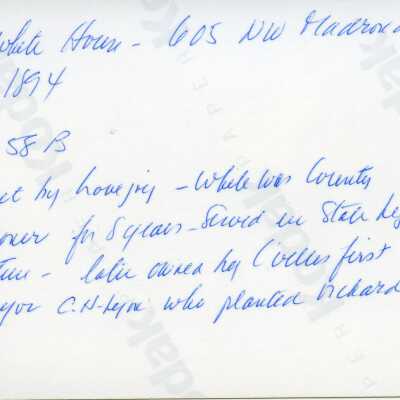 White House - 605 NW Madrona
1894
58 B
by Lovejoy - White was County
for 8 years - Served in State Leg
ture - later owned by first
yor C.H. who planted orchard